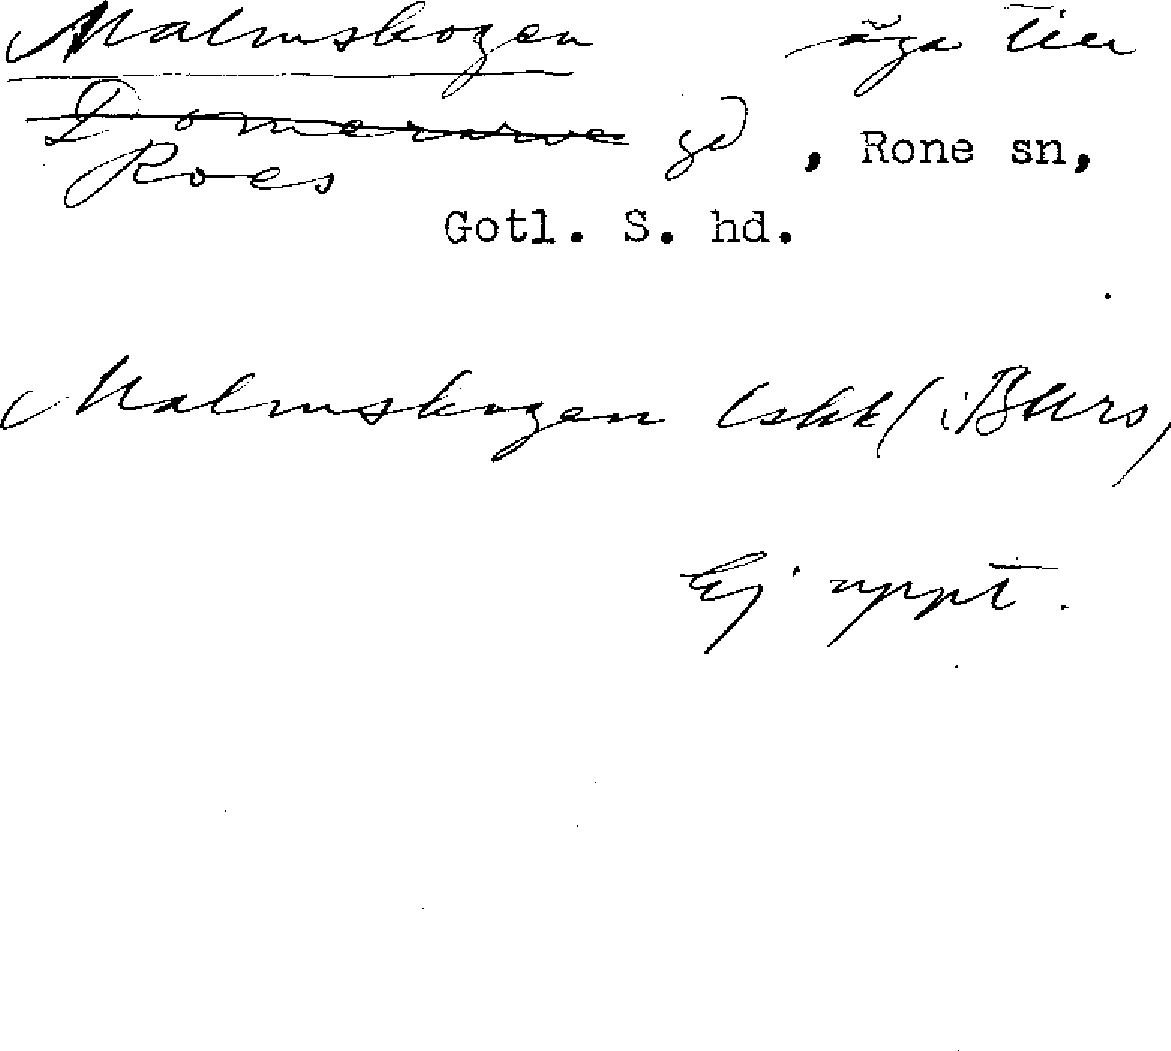 Malmskogen äga till
Domerarve gd, Rone sn,
Roes
Gotl. S. hd.
Malmskogen (skk) i Burs,
Ej uppt.